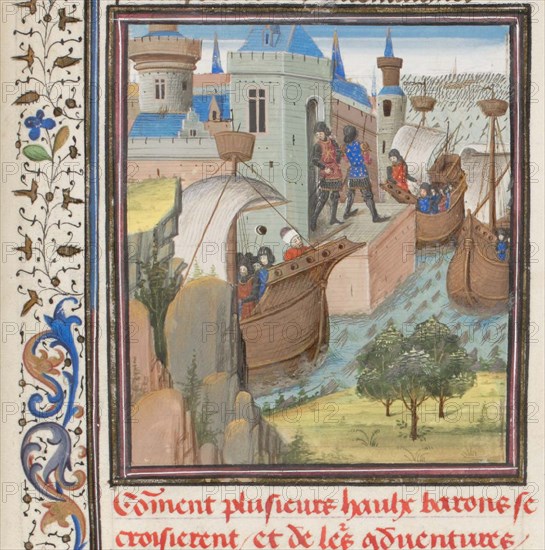 Comment plusieurs haulx barons se
croisierent / et de leurs aduentures /
PHOTO12